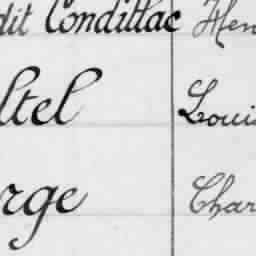 dit Condillac Hen
ltel Louis
rge Char